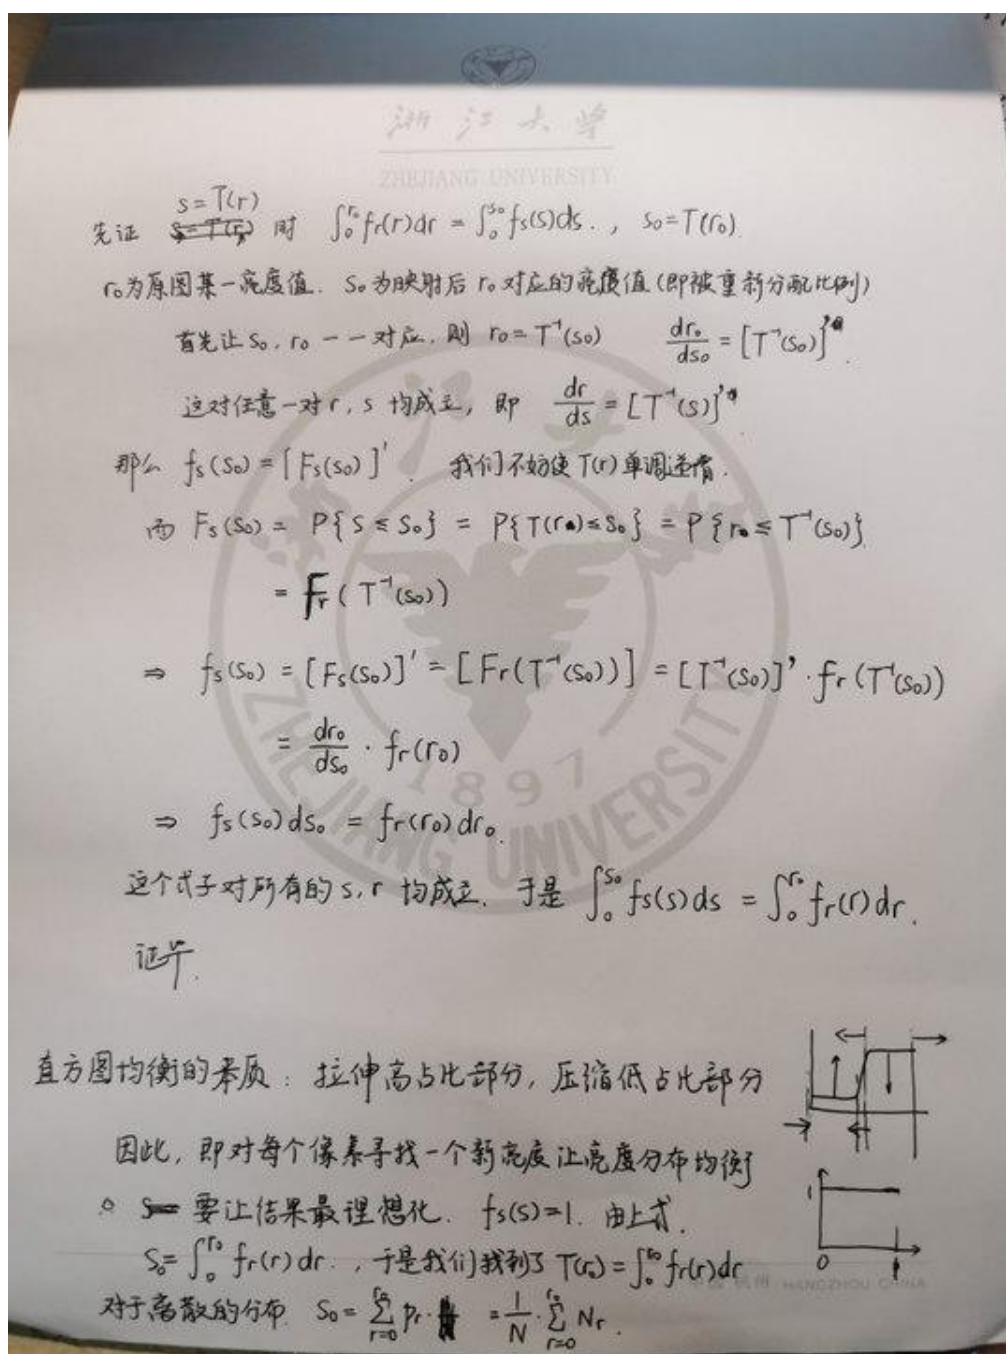 浙江大學
ZHEJIANG UNIVERSITY
s = T(r)
先证 s = T(r) 时 ∫₀^{r₀} fr(r)dr = ∫₀^{s₀} fs(s)ds. , s₀ = T(r₀).
r₀为原图某一亮度值. S₀为映射后 r₀ 对应的亮度值(即被重新分配比例)
首先让 S₀, r₀ 一一对应, 则 r₀ = T⁻¹(s₀) dr₀/ds₀ = [T⁻¹(s₀)]'
这对任意一对 r, s 均成立, 即 dr/ds = [T⁻¹(s)]'
那么 fs(s₀) = [Fs(s₀)]'. 我们不妨使 T(r) 单调递增.
而 Fs(s₀) = P{s ≤ s₀} = P{T(r) ≤ s₀} = P{r ≤ T⁻¹(s₀)}
= Fr(T⁻¹(s₀))
⇒ fs(s₀) = [Fs(s₀)]' = [Fr(T⁻¹(s₀))] = [T⁻¹(s₀)]' · fr(T⁻¹(s₀))
= dr₀/ds₀ · fr(r₀)
⇒ fs(s₀)ds₀ = fr(r₀)dr₀.
这个式子对所有的 s, r 均成立. 于是 ∫₀^{s₀} fs(s)ds = ∫₀^{r₀} fr(r)dr.
证毕.
ZHEJIANG UNIVERSITY
1897
直方图均衡的本质: 拉伸高占比部分, 压缩低占比部分
因此, 即对每个像素寻找一个新亮度让亮度分布均衡
。 s= 要让结果最理想化. fs(s)=1. 由上式.
S₀ = ∫₀^{r₀} fr(r)dr. , 于是我们找到了 T(r₀) = ∫₀^{r₀} fr(r)dr
1
0
1
中国 杭州 HANGZHOU CHINA
对于离散的分布 S₀ = Σ_{r=0}^{r₀} Pr · = 1/N · Σ_{r=0}^{r₀} Nr.